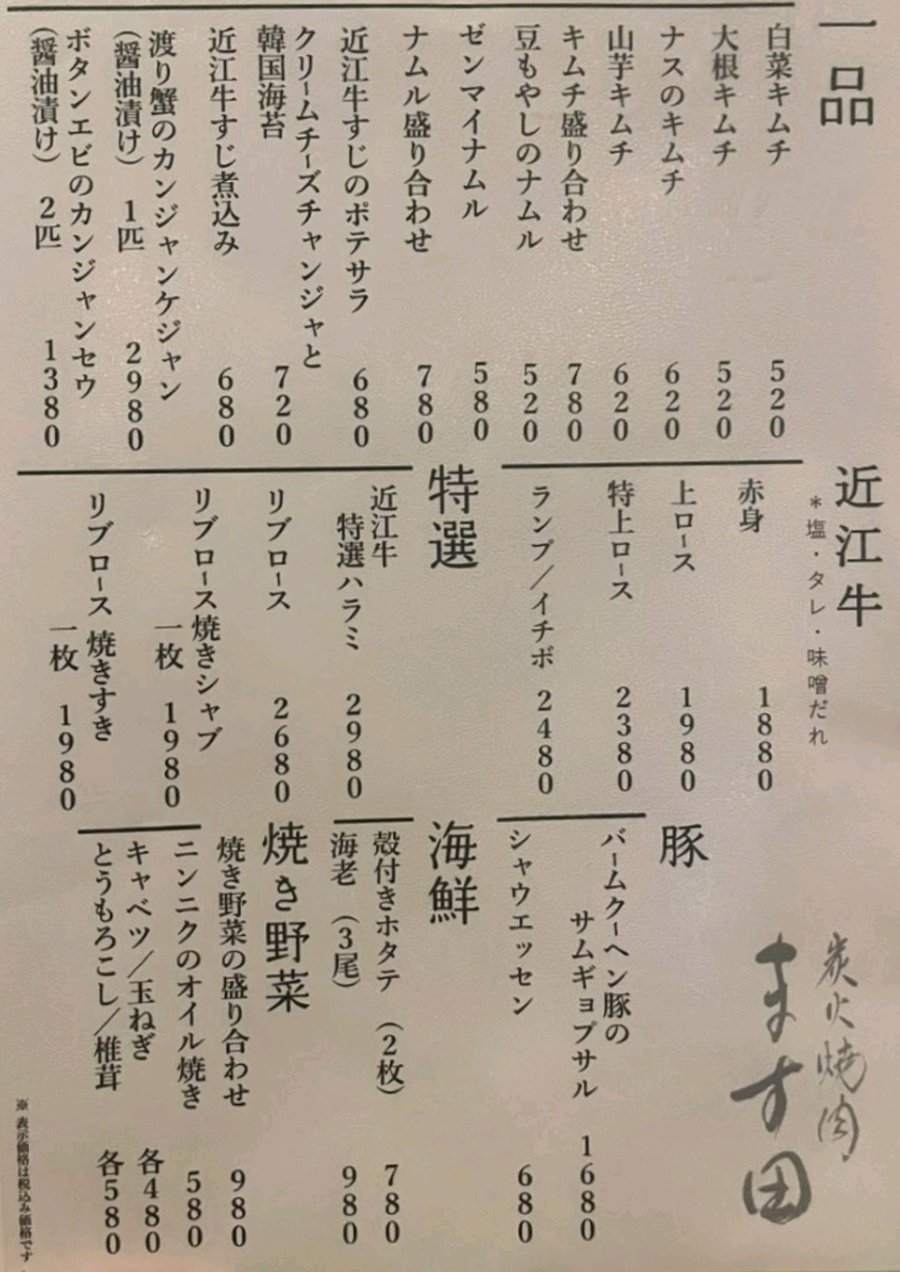 一品
白菜キムチ 520
大根キムチ 520
ナスのキムチ 620
山芋キムチ 620
キムチ盛り合わせ 780
豆もやしのナムル 520
ゼンマイナムル 580
ナムル盛り合わせ 780
近江牛すじのポテサラ 680
クリームチーズチャンジャと
韓国海苔 720
近江牛すじ煮込み 680
渡り蟹のカンジャンケジャン
（醤油漬け） 1匹 2980
ボタンエビのカンジャンセウ
（醤油漬け） 2匹 1380
近江牛
＊塩・タレ・味噌だれ
赤身 1880
上ロース 1980
特上ロース 2380
ランプ／イチボ 2480
特選
近江牛
特選ハラミ 2980
リブロース 2680
リブロース焼きシャブ
一枚 1980
リブロース 焼きすき
一枚 1980
豚
バームクーヘン豚の
サムギョプサル 1680
シャウエッセン 680
海鮮
殻付きホタテ （2枚） 780
海老 （3尾） 980
焼き野菜
焼き野菜の盛り合わせ 980
ニンニクのオイル焼き 580
キャベツ／玉ねぎ 各480
とうもろこし／椎茸 各580
炭火焼肉
ます田
※ 表示価格は税込み価格です